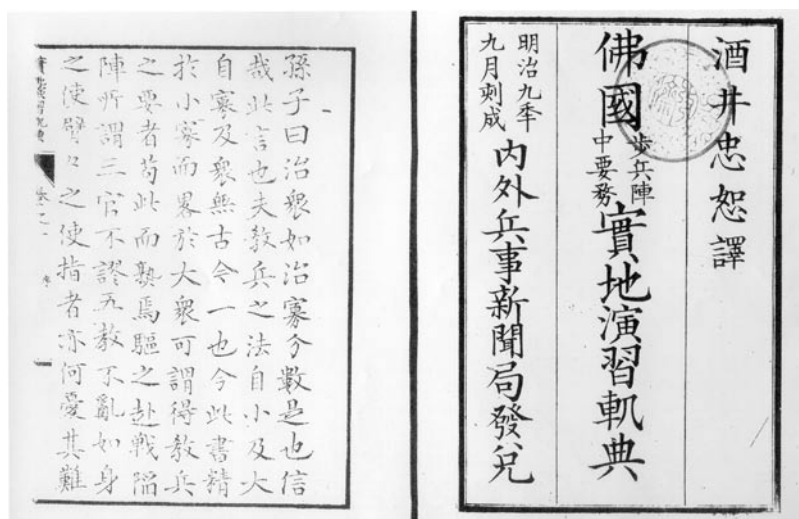 酒井忠恕譯
佛國歩兵陣中要務實地演習軌典
明治九年
九月刻成
内外兵事新聞局發兌
孫子曰治衆如治寡分數是也信
哉此言也夫教兵之法自小及大
自寡及衆無古今一也今此書精
於小寡而畧於大衆可謂得教兵
之要者苟此而熟焉驅之赴戦陥
陣所謂三官不謬五教不亂如身
之使臂々之使指者亦何憂其難